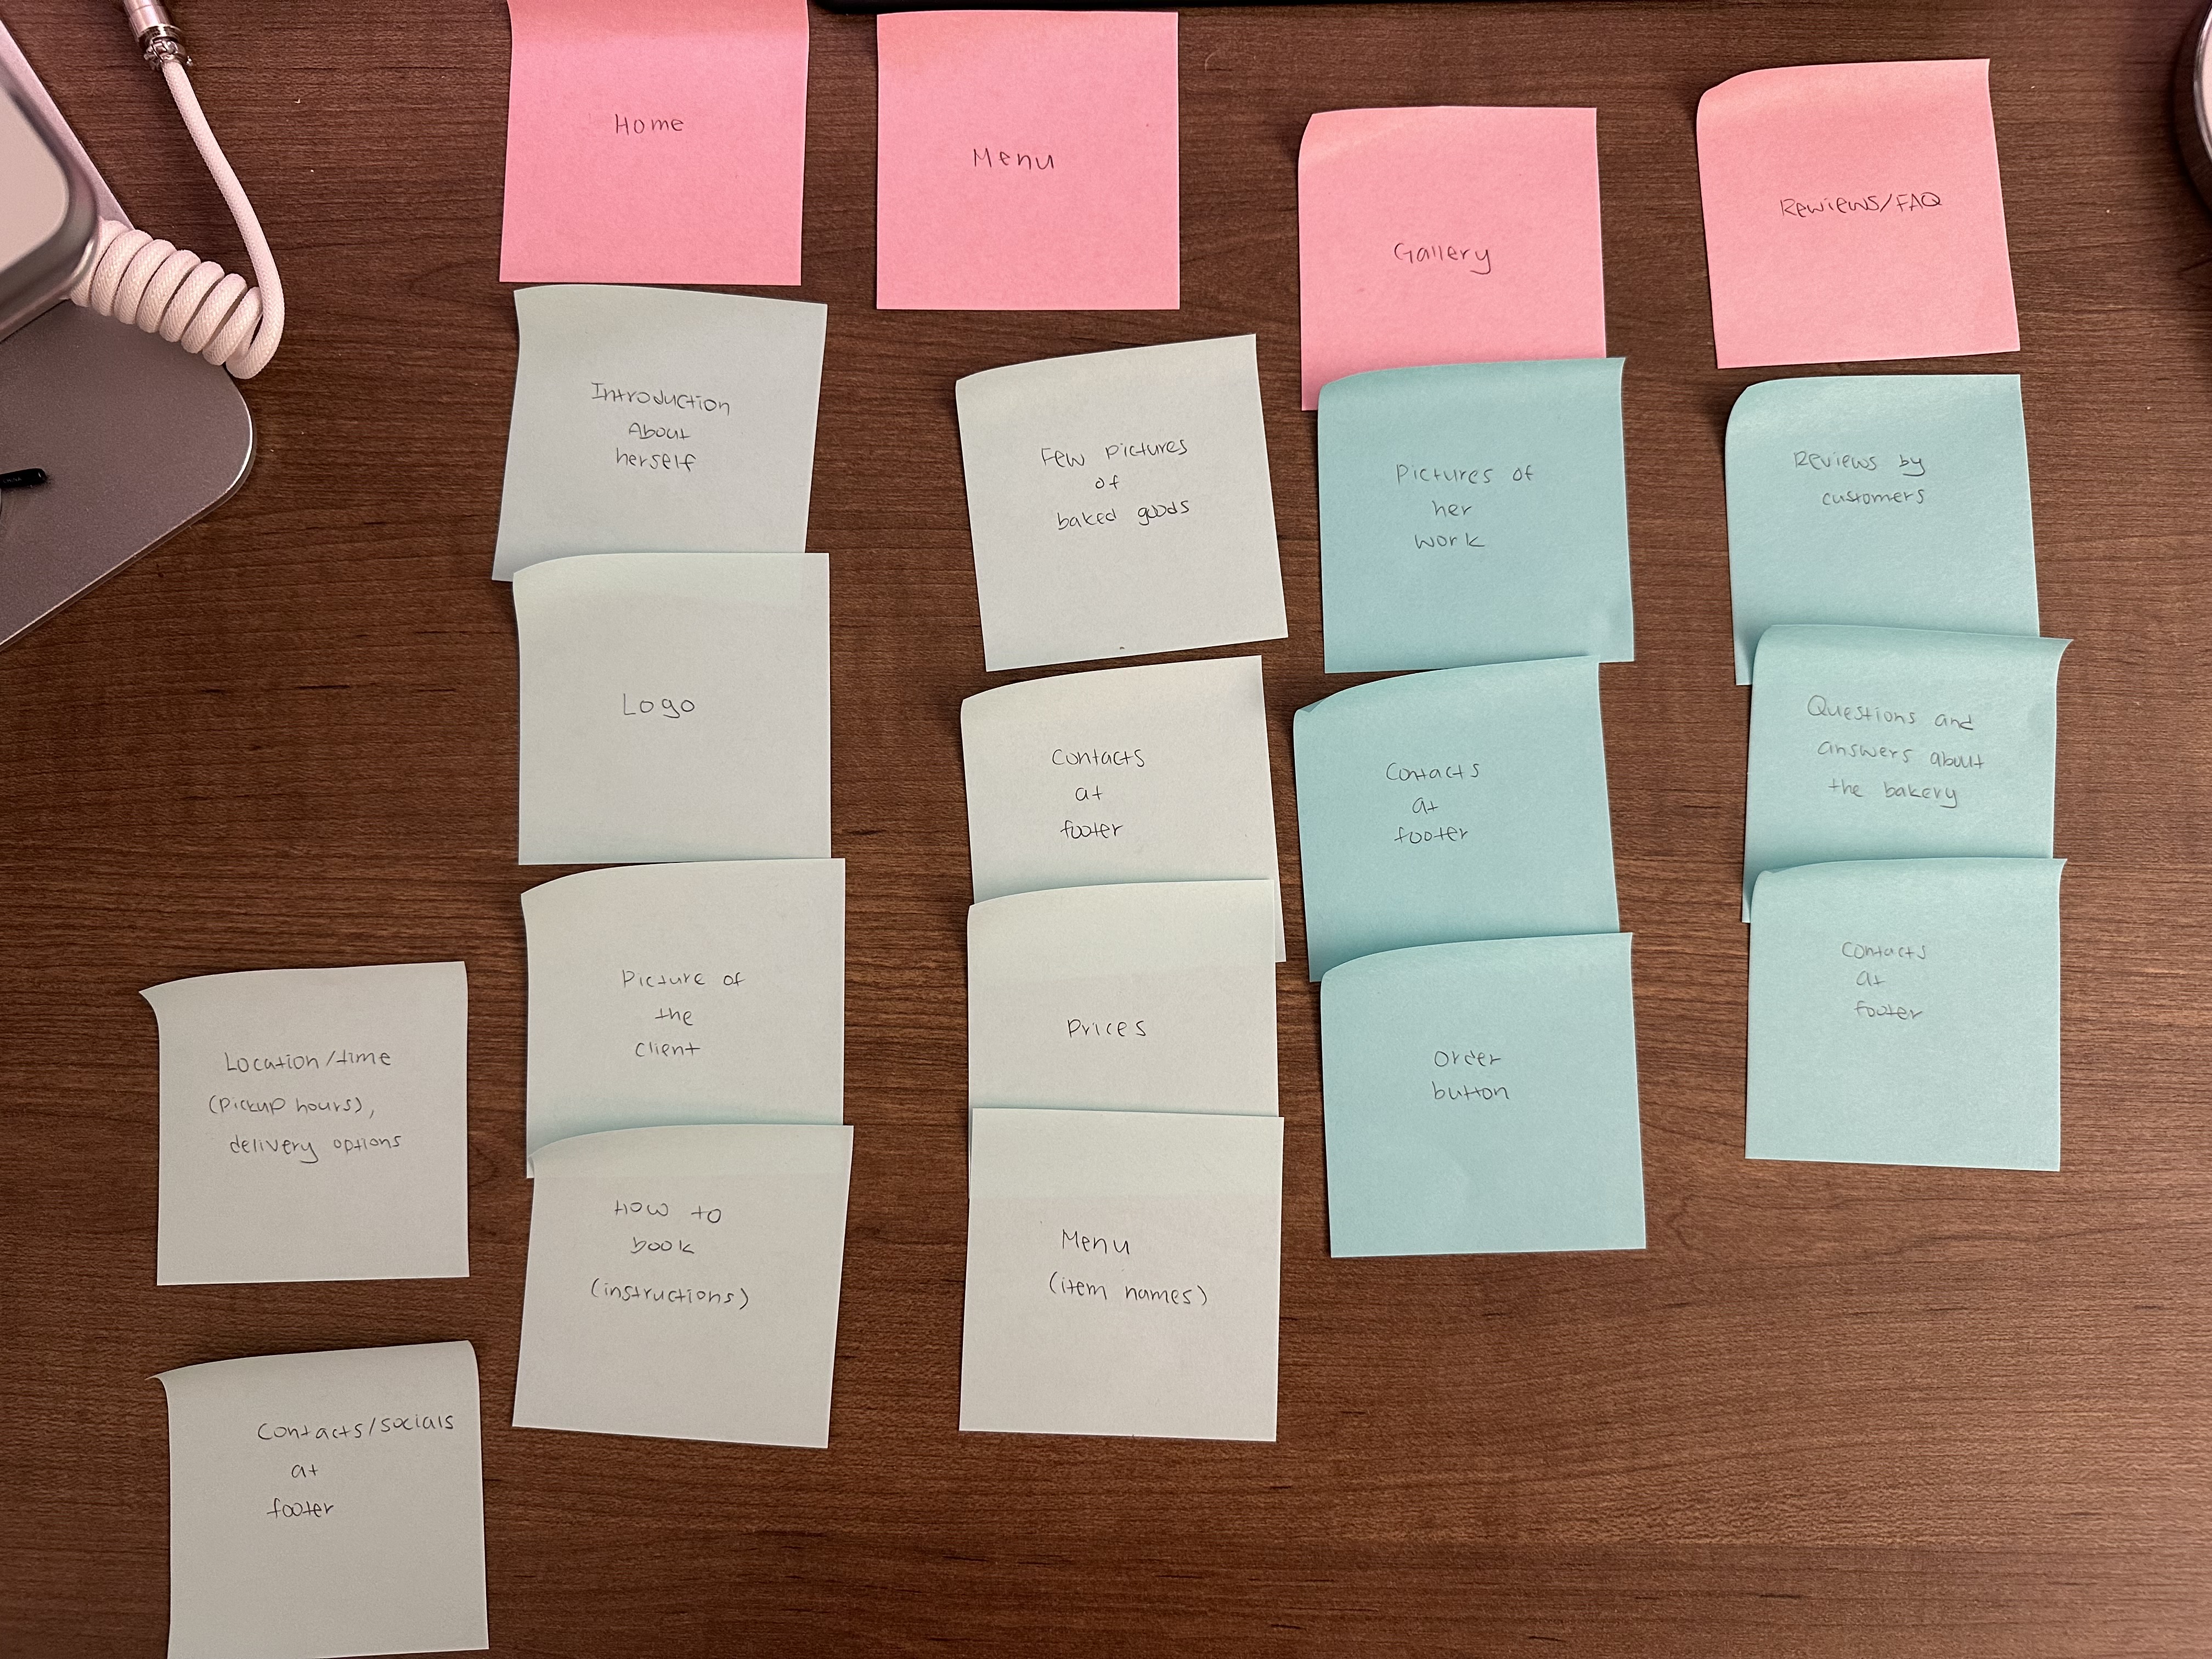 Home
Menu
Gallery
Rewiews/FAQ
Introduction
About
herself
Logo
Picture of
the
client
How to
book
(instructions)
Location/time
(Pickup hours),
delivery options
Contacts/socials
at
footer
Few pictures
of
baked goods
Contacts
at
footer
Prices
Menu
(item names)
Pictures of
her
work
Contacts
at
footer
Order
button
Reviews by
customers
Questions and
answers about
the bakery
Contacts
at
footer